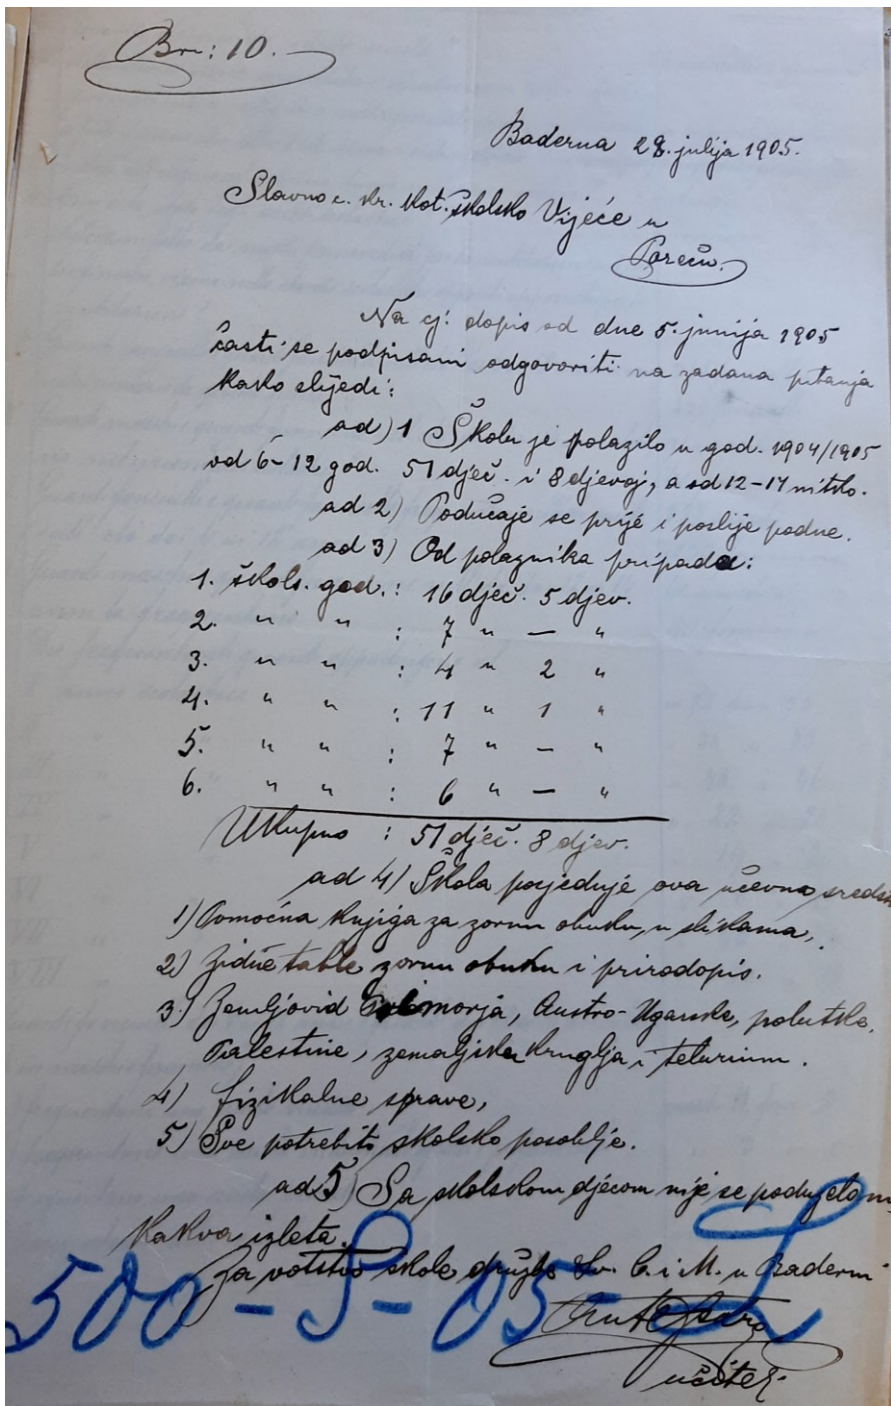 Br: 10.
Baderna 28. julija 1905.
Slavno c. kr. kot. školsko Vijeće u
Poreču.
Na cj. dopis od dne 5. junija 1905
časti se podpisani odgovoriti na zadana pitanja
kako slijedi:
ad) 1 Školu je polazilo u god. 1904/1905
od 6-12 god. 51 dječ. i 8 djevoj, a od 12-14 nitko.
ad 2) Podučaje se prije i poslije podne.
ad 3) Od polaznika pripada:
1. škols. god.: 16 dječ. 5 djev.
2. " " : 7 " — "
3. " " : 4 " 2 "
4. " " : 11 " 1 "
5. " " : 7 " — "
6. " " : 6 " — "
Ukupno : 51 dječ. 8 djev.
ad 4) Škola posjeduje ova učevna
1) Pomoćna knjiga za zornu obuku, u slikama,
2) Zidne table zornu obuku i prirodopis.
3) Zemljovid Primorja, Austro-Ugarske, polutske,
Palestine, zemaljska kruglja i telurium.
4) fizikalne sprave,
5) Sve potrebito školsko posoblje.
ad 5) Sa školskom djecom nije se poduzelo
kakva izleta.
Za votstvo škole družbe Sv. C. i M. u Baderni
500-S-05-
učitelj.